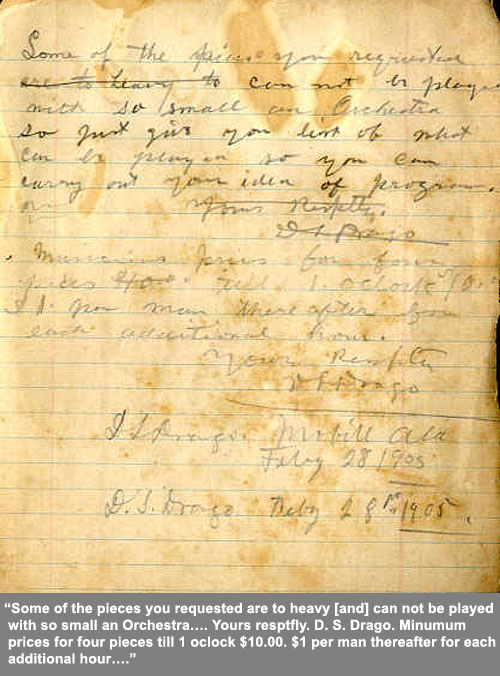 Some of the pieces you requested
are to heavy to can not be played
with so small an Orchestra
so just give you list of what
can be played so you can
carry out your idea of program.
Yours Resptly.
D S Drago
prices for four
pieces till 1. oclock $10.00
$1. per man thereafter for
each additional hour.
Yours Resptly
D S Drago
Drago. Mobill Ala
Feby 28 1905
D. S. Drago Feby 28th 1905.
“Some of the pieces you requested are to heavy [and] can not be played
with so small an Orchestra…. Yours resptfly. D. S. Drago. Minumum
prices for four pieces till 1 oclock $10.00. $1 per man thereafter for each
additional hour….”